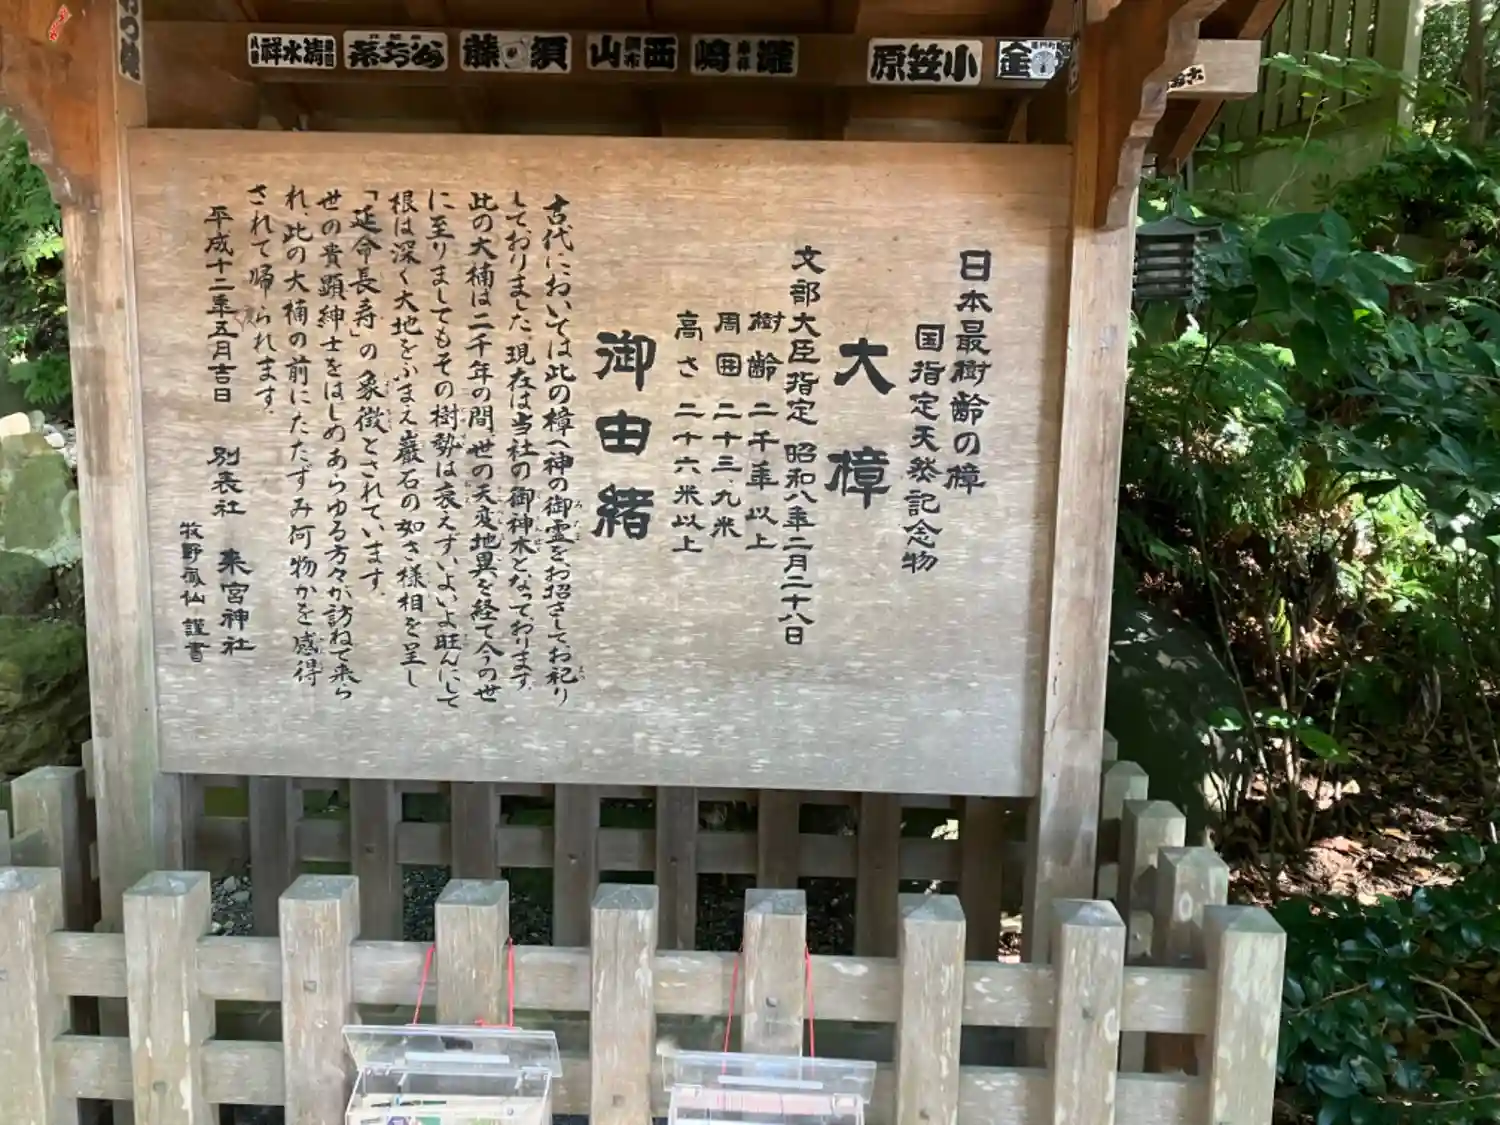 日本最樹齢の樟
国指定天然記念物
大樟
文部大臣指定 昭和八年二月二十八日
樹齢 二千年以上
周囲 二十三、九米
高さ 二十六米以上
御由緒
古代においては此の樟へ神の御霊をお招きして、お祀り
しておりました。現在は当社の御神木となっております。
此の大楠は二千年の間世の天変地異を経て今の世
に至りましてもその樹勢は衰えずいよいよ旺んにして
根は深く大地をふまえ巌石の如き様相を呈し
「延命長寿」の象徴とされています。
世の貴顕紳士をはじめあらゆる方々が訪ねて来ら
れ、此の大楠の前にたたずみ何物かを感得
されて帰られます。
平成十二年五月吉日 別表社 来宮神社
牧野 仙 謹書
清水祥
須藤
西山
瀧崎
小笠原
金